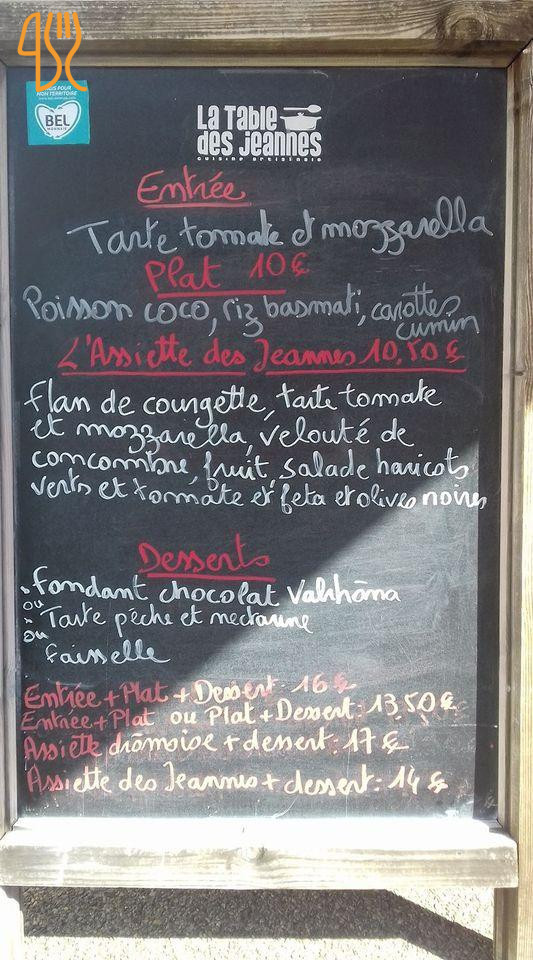 OUIS POUR
MON TERRITOIRE
BEL
MONNAIE
La Table
des Jeannes
cuisine artisinale
Entrée
Tarte tomate et mozzarella
Plat 10€
Poisson coco, riz basmati, carottes
cumin
L'Assiette des Jeannes 10,50€
flan de courgette, tarte tomate
et mozzarella, velouté de
concombre, fruit, salade haricots
verts et tomate et feta et olives noires
Desserts
• fondant chocolat Valrhôna
ou
• Tarte pêche et nectarine
ou
faisselle
Entrée + Plat + Dessert: 16€
Entrée + Plat ou Plat + Dessert: 13,50€
Assiette drômoise + dessert: 17€
Assiette des Jeannes + dessert: 14€